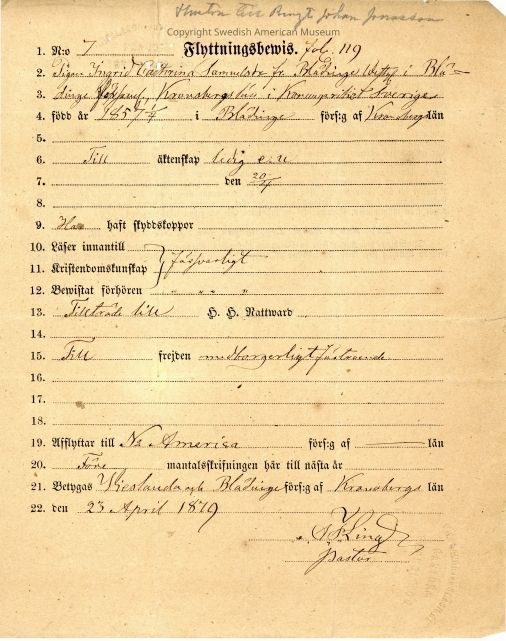 Johan Jonasson
Copyright Swedish American Museum
1. N:o 7 Flyttningsbewis. fol. 119
2. Pigan Ingrid Cathrina Samuelsdr fr. Blädinge i Blä-
3. dinge Kronobergs län i Konungariket Sverige
4. född år 1857 i Blädinge förs:g af Kronobergs län
5.
6. Till äktenskap ledig
7. den
8.
9. haft skyddskoppor
10. Läser innantill
11. Kristendomskunskap } försvarligt
12. Bewistat förhören " " "
13. Tillträde till H. H. Nattward
14.
15. Till frejden medborgerligt
16.
17.
18.
19. Afflyttar till Na America förs:g af län
20. Före mantalsskrifningen här till nästa år
21. Betygas Wieslanda och Blädinge förs:g af Kronobergs län
22. den 23 April 1879
Pastor